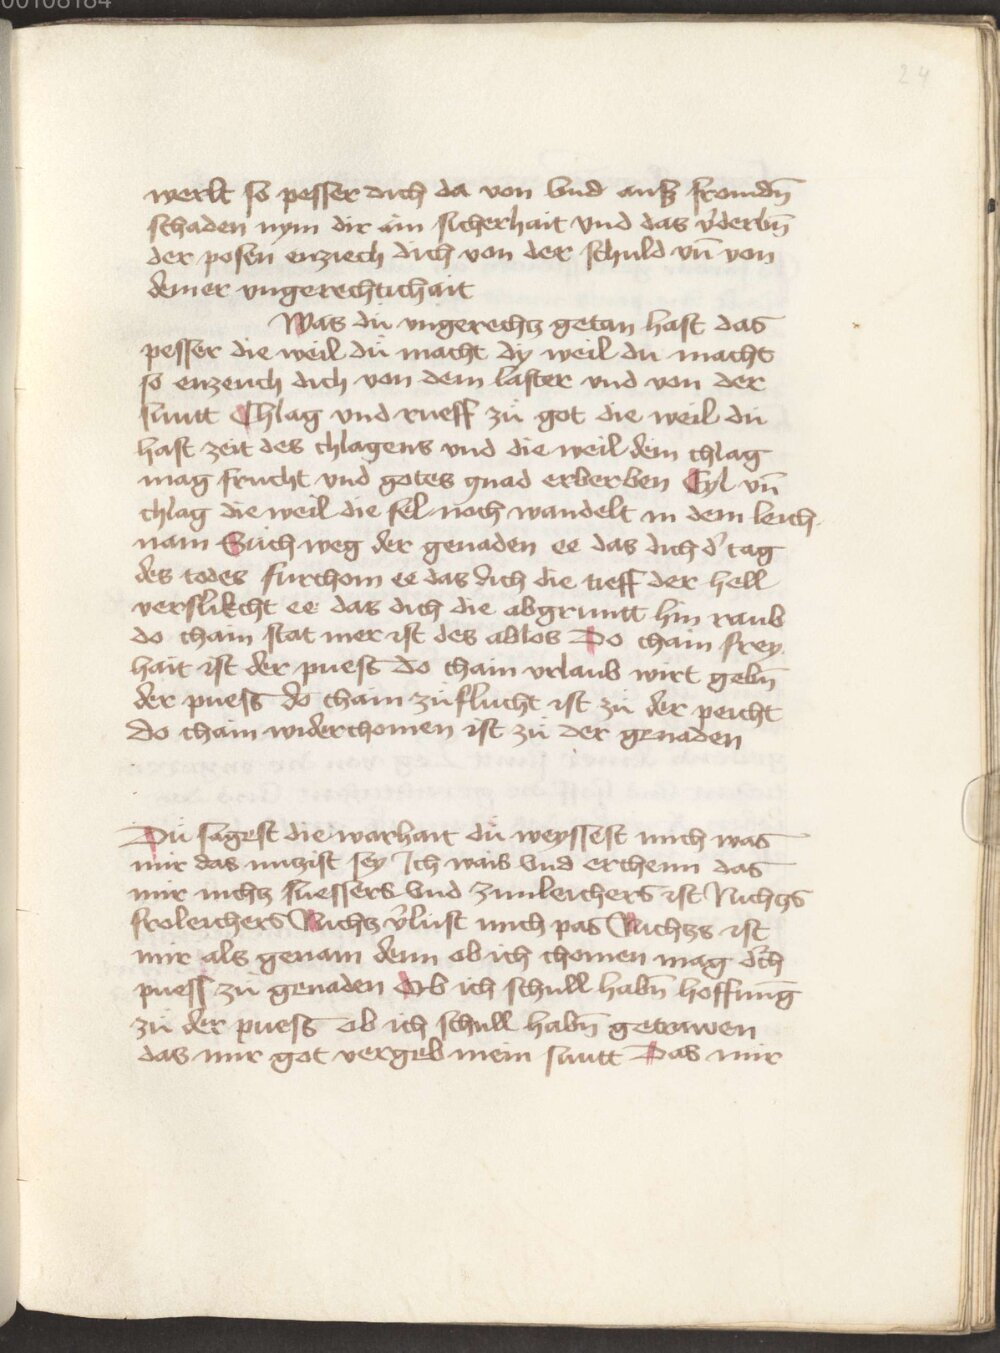 00108184
24
werlt so pesser dich da von Vnd auss fromdn̄
schaden nym dir ain sicherhait vnd das v̓derbn̄
der posen enziech dich von der schuld vn̄ von
deiner vngerechtichait
Was du vngerechtz getan hast das
pesser die weil dü macht dy weil du macht
so enzeuch dich von dem laster vnd von der
suntt Chlag vnd rueff zü got die weil dü
hast zeit des chlagens vnd die weil dein chlag
mag frucht vnd gotes gnad erberben Eyl vn̄
chlag die weil die sel noch wandelt in dem leich
nam Such weg der genaden ee das dich d̓ tag
des todes furchom ee das dich die tieff der hell
verslikcht ee das dich die abgruntt hin raub
do chain stat mer ist des ablos Do chain frey
hait ist der puess do chain vrlaub wirt gebn̄
der puess do chain züflucht ist zü der peicht
do chain widerchomen ist zü der genaden
Dü sagest die warhait dü weyssest mich was
mir das nutzist sey Ich wais Vnd erchenn das
mir nichtz suessers Vnd zimleichers ist Nichtzs
froleichers Nichtz v̓lust mich pas Nichtzs ist
mir als genam denn ob ich chomen mag d̓ch
puess zü genaden Ob ich schull habn̄ hoffnung
zü der puess ob ich schull habn̄ getrawen
das mir got vergeb mein suntt Das mir